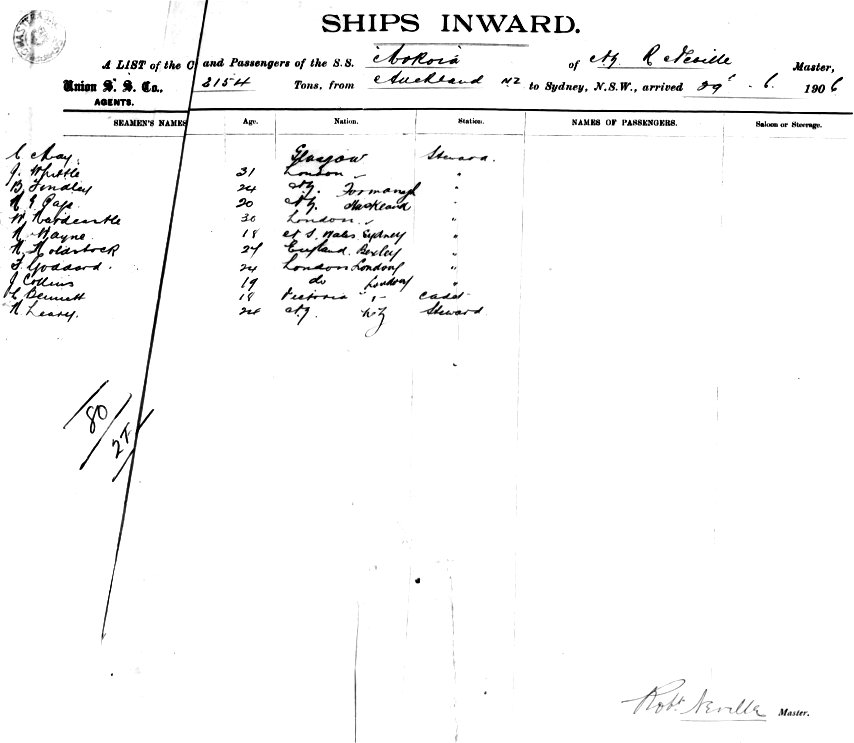 SHIPS INWARD.
A LIST of the C and Passengers of the S.S. Mokoia of N.Z. R Neville Master,
Union S. S. Co., 2154 Tons, from Auckland NZ to Sydney, N.S.W., arrived 29 . 6. 1906
AGENTS.
SEAMEN'S NAMES Age. Nation. Station. NAMES OF PASSENGERS. Saloon or Steerage.
C Glasgow Steward.
J. Whittle 31 London " "
B. Findlay 24 N.Z. "
20 N.Z. Auckland "
W. Hardcastle 30 London " "
Wayne. 18 N S. Wales Sydney "
Holdstock 24 England Bexley "
F. Goddard. 24 London London "
J Collins 19 do London "
C Bennett 18 Victoria " Cadet
Leary. 24 N.Z. NZ Steward
80
27
Robt Neville Master.